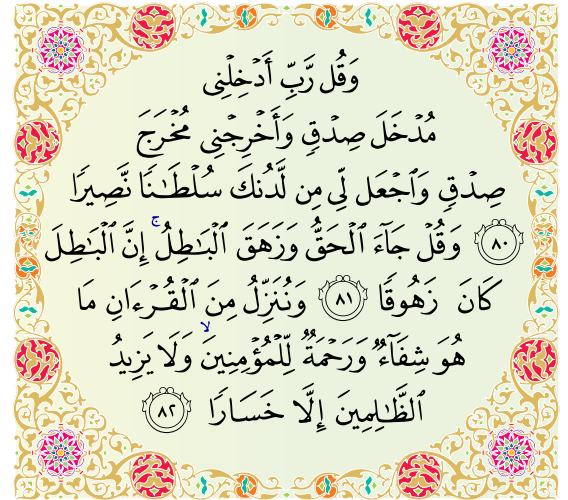 وَقُل رَّبِّ أَدْخِلْنِى
مُدْخَلَ صِدْقٍ وَأَخْرِجْنِى مُخْرَجَ
صِدْقٍ وَٱجْعَل لِّى مِن لَّدُنكَ سُلْطَـٰنًا نَّصِيرًا
٨٠ وَقُلْ جَآءَ ٱلْحَقُّ وَزَهَقَ ٱلْبَـٰطِلُ ۚ إِنَّ ٱلْبَـٰطِلَ
كَانَ زَهُوقًا ٨١ وَنُنَزِّلُ مِنَ ٱلْقُرْءَانِ مَا
هُوَ شِفَآءٌ وَرَحْمَةٌ لِّلْمُؤْمِنِينَ ۙ وَلَا يَزِيدُ
ٱلظَّـٰلِمِينَ إِلَّا خَسَارًا ٨٢